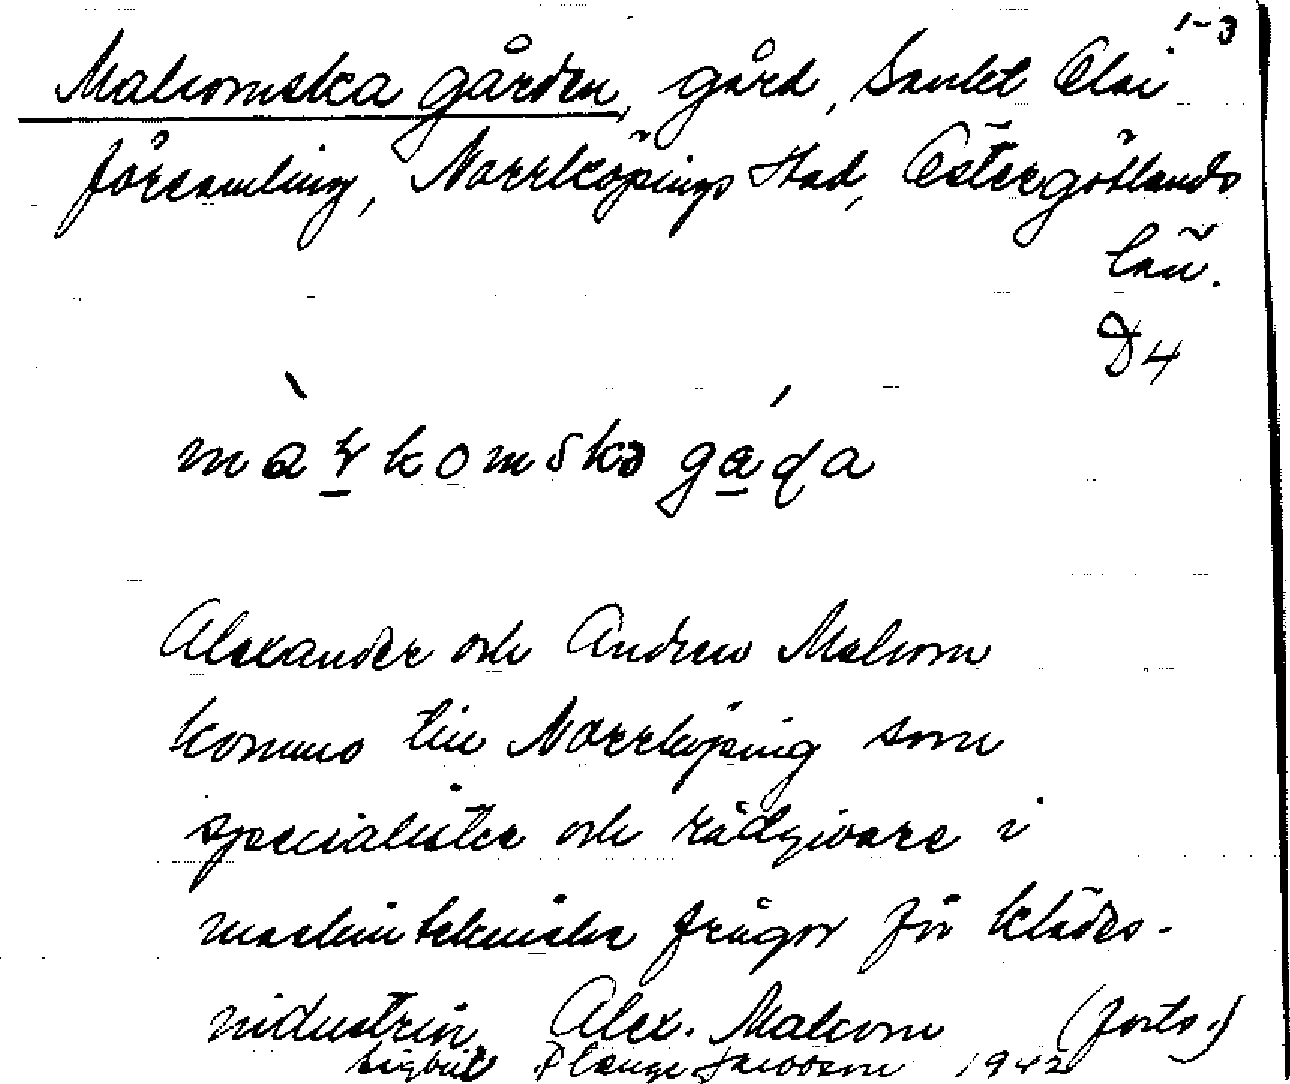 1-3
Malcomska gården, gård, Sankt Olai
församling, Norrköpings stad, Östergötlands
län.
D4
màłkomskə gá̱ɖa
Alexander och Andrew Malcom
kommo till Norrköping som
specialister och rådgivare i
maskintekniska frågor för klädes-
industrin. Alex. Malcom (forts.)
Sigbrit Plænge Jacobson 1942